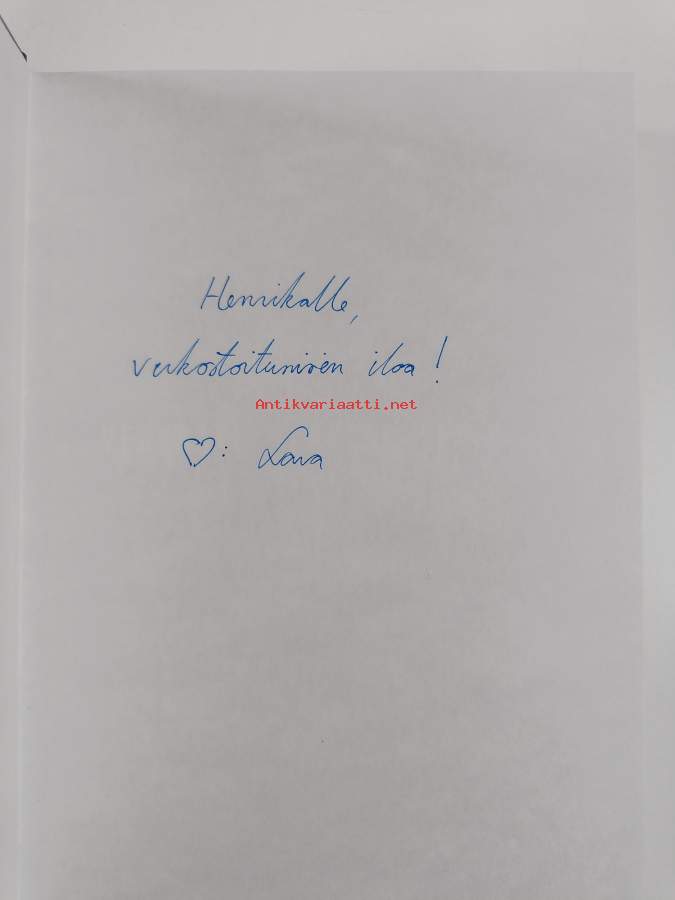 Henrikalle,
verkostoitumisen iloa!
Antikvariaatti.net
♡: Laura